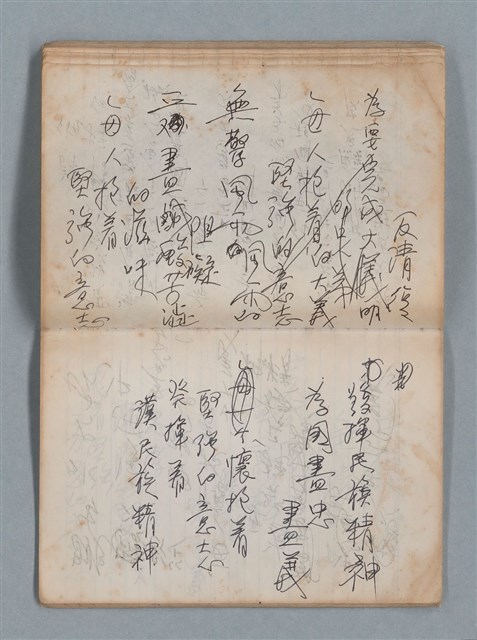 反清復
為要完成大儀明
每人抱着的大義
堅強的意志
無驚風雨飄雪
阻礙
盡鹹酸苦澀
的滋味
每人抱着
堅強的意志
發揮民族精神
為國盡忠
盡義
懷抱着
堅強的意志
發揮着
漢民族精神